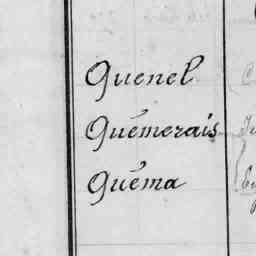 Quenel
Quémerais
Quéma